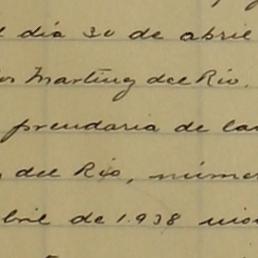 día 30 de abril
Martinz del Rio.
prendaria de la
del Rio, núme
bril de 1.938